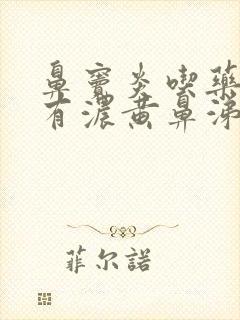 鼻竇炎喫藥
有濃黃鼻涕
菲尔諾